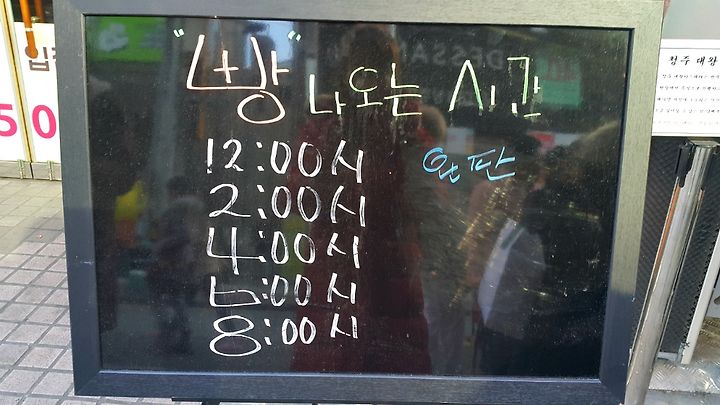 "빵" 나오는 시간
12:00시 완판
2:00시
4:00시
6:00시
8:00시
청주 대왕
50